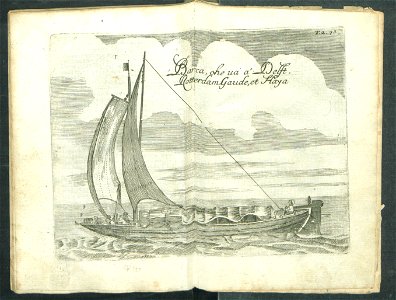 Barca, che uà à Delft.
Roterdam Gaude, et Haya